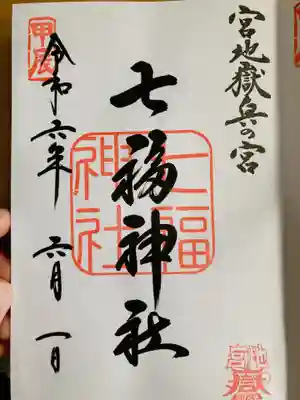 宮地嶽兵の宮
七福神社
七福神社
令和六年 六月 一日
甲辰
宮地嶽